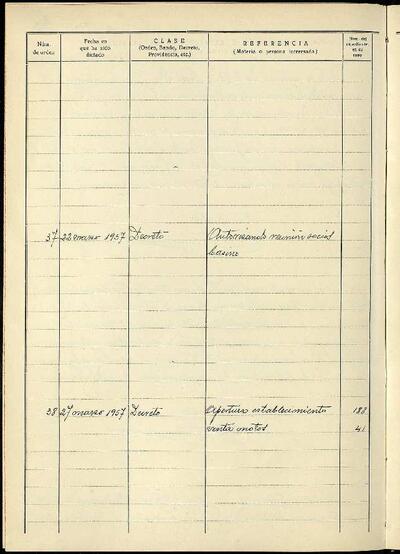 Núm. de orden
Fecha en que ha sido dictado
CLASE
(Orden, Bando, Decreto, Providencia, etc.)
REFERENCIA
(Materia o persona interesada)
Núm. del expediente en su caso
37 22 marzo 1957 Decreto Autorizando reunión socios
Casino
38 27 marzo 1957 Decreto Apertura establecimiento 188
venta motos 41